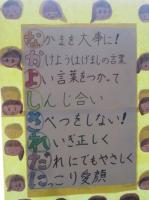 なかまを大事に!
かけようはげましの言葉
よい言葉をつかって
しんじ合い
さべつをしない!
れいぎ正しく
だれにでもやさしく
にっこり愛顔